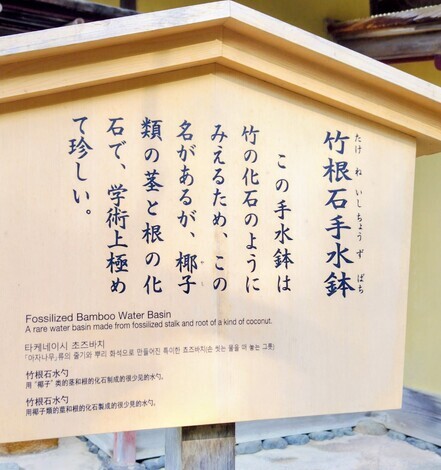 竹根石手水鉢
たけねいしちょうずばち
この手水鉢は
竹の化石のように
みえるため、この
名があるが、椰子
類の茎と根の化
石で、学術上極め
て珍しい。
Fossilized Bamboo Water Basin
A rare water basin made from fossilized stalk and root of a kind of coconut.
타케네이시 쵸즈바치
「야자나무」류의 줄기와 뿌리 화석으로 만들어진 특이한 쵸즈바치(손 씻는 물을 떠 놓는 그릇)
竹根石水勺
用"椰子"类的茎和根的化石制成的很少见的水勺。
竹根石水勺
用椰子類的莖和根的化石製成的很少見的水勺。